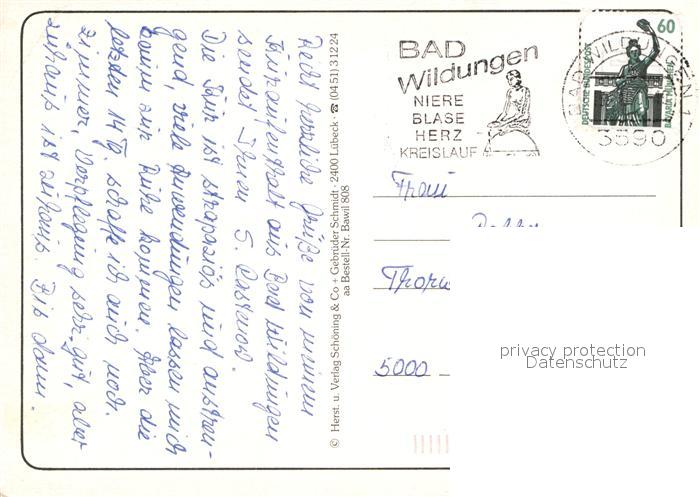 Recht herzliche Grüße von meinem
Kuraufenthalt aus Bad Wildungen
sendet Ihnen S.
Die Kur ist strapaziös und anstren-
gend, viele Anwendungen lassen mich
kaum zur Ruhe kommen. Aber die
letzten 14 Tg. schaffe ich auch noch.
Zimmer, Verpflegung sehr gut, aber
zuhaus ist zuhaus. Bis dann.
© Herst. u. Verlag Schöning & Co + Gebrüder Schmidt · 2400 Lübeck · ☎ (04 51) 3 12 24
aa Bestell-Nr. Bawil 808
BAD
Wildungen
NIERE
BLASE
HERZ
KREISLAUF
BAD WILDUNGEN 1
3590
60
DEUTSCHE BUNDESPOST
BAVARIA MÜNCHEN
Frau
Thora
5000
privacy protection
Datenschutz